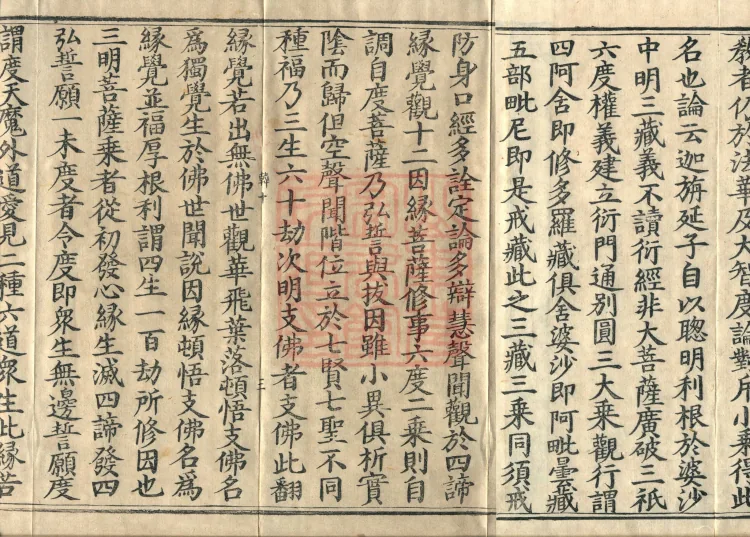 教者化於法華及大智度論對斥小乘行此
名也論云迦旃延子自以聰明利根於婆沙
中明三藏義不讀衍經非大菩薩廣破三祇
六度權義建立衍門通別圓三大乘觀行謂
四阿含即修多羅藏俱舍婆沙即阿毗曇藏
五部毗尼即是戒藏此之三藏三乘同須戒
防身口經多詮定論多辯慧聲聞觀於四諦
緣覺觀十二因緣菩薩修事六度二乘則自
調自度菩薩乃弘誓與拔因雖小異俱析實
陰而歸但空聲聞階位立於七賢七聖不同
種福乃三生六十劫次明支佛者支佛此翻
韓十
三
緣覺若出無佛世觀華飛葉落頓悟支佛名
為獨覺生於佛世聞說因緣頓悟支佛名為
緣覺並福厚根利謂四生一百劫所修因也
三明菩薩乘者從初發心緣生滅四諦發四
弘誓願一未度者令度即衆生無邊誓願度
謂度天魔外道愛見二種六道衆生此緣苦